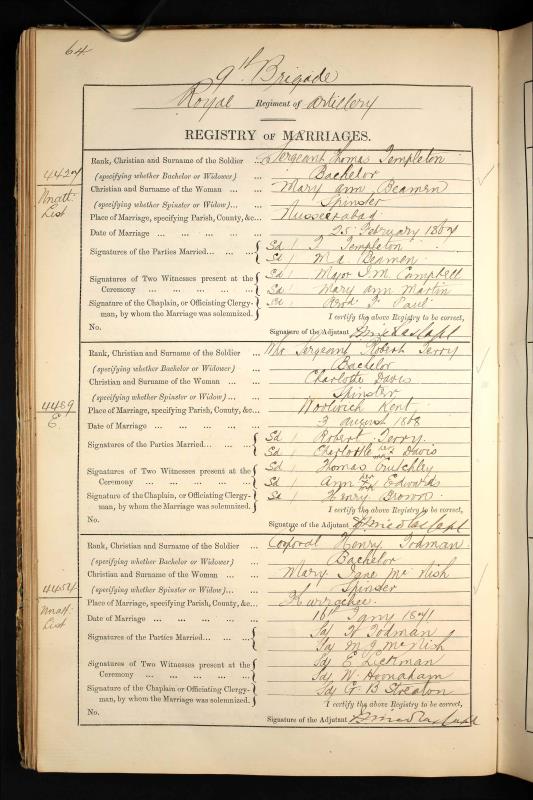 64
9th Brigade
Royal Regiment of Artillery
REGISTRY OF MARRIAGES.
4427
Unatt:
List
Rank, Christian and Surname of the Soldier ... Sergeant Thomas Templeton
(specifying whether Bachelor or Widower) ... Bachelor
Christian and Surname of the Woman ... ... Mary Ann Beamen
(specifying whether Spinster or Widow)... ... Spinster
Place of Marriage, specifying Parish, County, &c... Nusseerabad
Date of Marriage ... ... ... ... ... 25 February 1867
Signatures of the Parties Married... ... ... Sd/ T Templeton
Sd/ M A Beamen
Signatures of Two Witnesses present at the Sd/ Major J M Campbell
Ceremony ... ... ... ... ... Sd/ Mary Ann Martin
Signature of the Chaplain, or Officiating Clergy- Sd/ F Paul
man, by whom the Marriage was solemnized.
I certify the above Registry to be correct,
No.
Signature of the Adjutant Capt
4489
E.
Rank, Christian and Surname of the Soldier ... Sergeant Robert Terry
(specifying whether Bachelor or Widower) ... Bachelor
Christian and Surname of the Woman ... ... Charlotte Davis
(specifying whether Spinster or Widow)... ... Spinster
Place of Marriage, specifying Parish, County, &c... Woolwich Kent
Date of Marriage ... ... ... ... ... 3 August 1868
Signatures of the Parties Married... ... ... Sd/ Robert Terry
Sd/ Charlotte her mark Davis
Signatures of Two Witnesses present at the Sd/ Thomas Crutchley
Ceremony ... ... ... ... ... Sd/ Ann her mark Edwards
Signature of the Chaplain, or Officiating Clergy- Sd/ Henry Brown
man, by whom the Marriage was solemnized.
I certify the above Registry to be correct,
No.
Signature of the Adjutant Capt
4454
Unatt:
List
Rank, Christian and Surname of the Soldier ... Corporal Henry Todman
(specifying whether Bachelor or Widower) ... Bachelor
Christian and Surname of the Woman ... ... Mary Jane McNish
(specifying whether Spinster or Widow)... ... Spinster
Place of Marriage, specifying Parish, County, &c... Kurrachee
Date of Marriage ... ... ... ... ... 16th Jany 1871
Signatures of the Parties Married... ... ... Sdg H Todman
Sdg M J McNish
Signatures of Two Witnesses present at the Sdg E Lickman
Ceremony ... ... ... ... ... Sdg W. Hornaham
Signature of the Chaplain or Officiating Clergy- Sdg G B Streaton
man, by whom the Marriage was solemnized.
I certify the above Registry to be correct,
No.
Signature of the Adjutant Capt